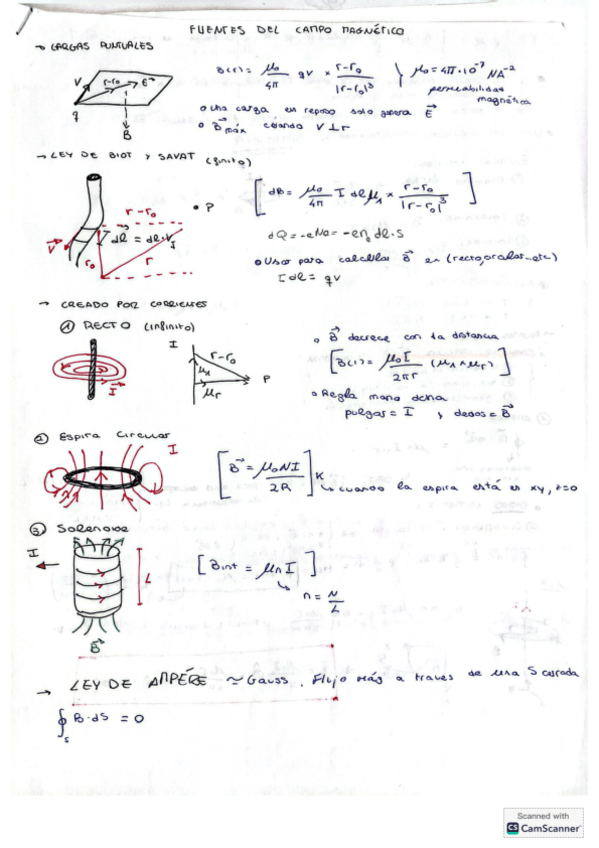 FUENTES DEL CAMPO MAGNÉTICO
→ CARGAS PUNTUALES
B(r) = μ₀/4π qv × r-r₀/|r-r₀|³ } μ₀ = 4π·10⁻⁷ NA⁻²
permeabilidad magnética
V r-r₀ E
q
B
o Una carga en reposo solo genera E⃗
o B⃗máx cuando V ⊥ r
→ LEY DE BIOT Y SAVAT (finito)
[dB = μ₀/4π I dl μ × r-r₀/|r-r₀|³]
r-r₀ • P
V⃗ dl⃗ = dl·
r₀ r
dQ = -eNa = -en dl·s
o Usar para calcular B⃗ en (recto, arcadas...etc)
I dl = qv
→ CREADO POR CORRIENTES
① RECTO (infinito)
I r-r₀ P
μr
I⃗
o B⃗ decrece con la distancia
[B(r) = μ₀I/2πr (μ ∧ μr)]
o Regla mano dcha
pulgar = I , dedos = B⃗
② Espira Circular
I
[B⃗ = μ₀NI/2R] K
↳ cuando la espira está en xy, z=0
③ Solenoide
I
L
B⃗
[Bint = μnI]
↳ n = N/L
→ LEY DE AMPÉRE ≃ Gauss. Flujo mág a traves de una S cerrada
∮s B·ds = 0
Scanned with
CS CamScanner